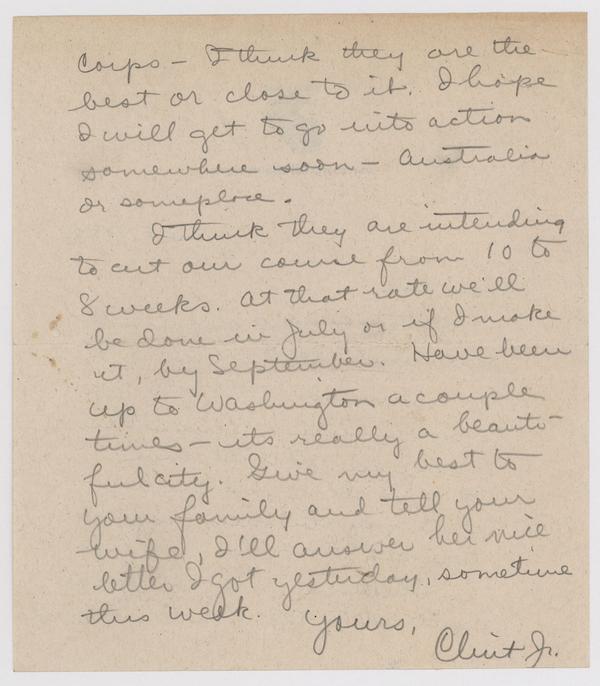 Corps - I think they are the
best or close to it. I hope
I will get to go into action
somewhere soon - Australia
or someplace.
I think they are intending
to cut our course from 10 to
8 weeks. At that rate we'll
be done in July or if I make
it, by September. Have been
up to Washington a couple
times - its really a beauti-
ful city. Give my best to
your family and tell your
wife, I'll answer her nice
letter I got yesterday, sometime
this week. Yours,
Clint Jr.